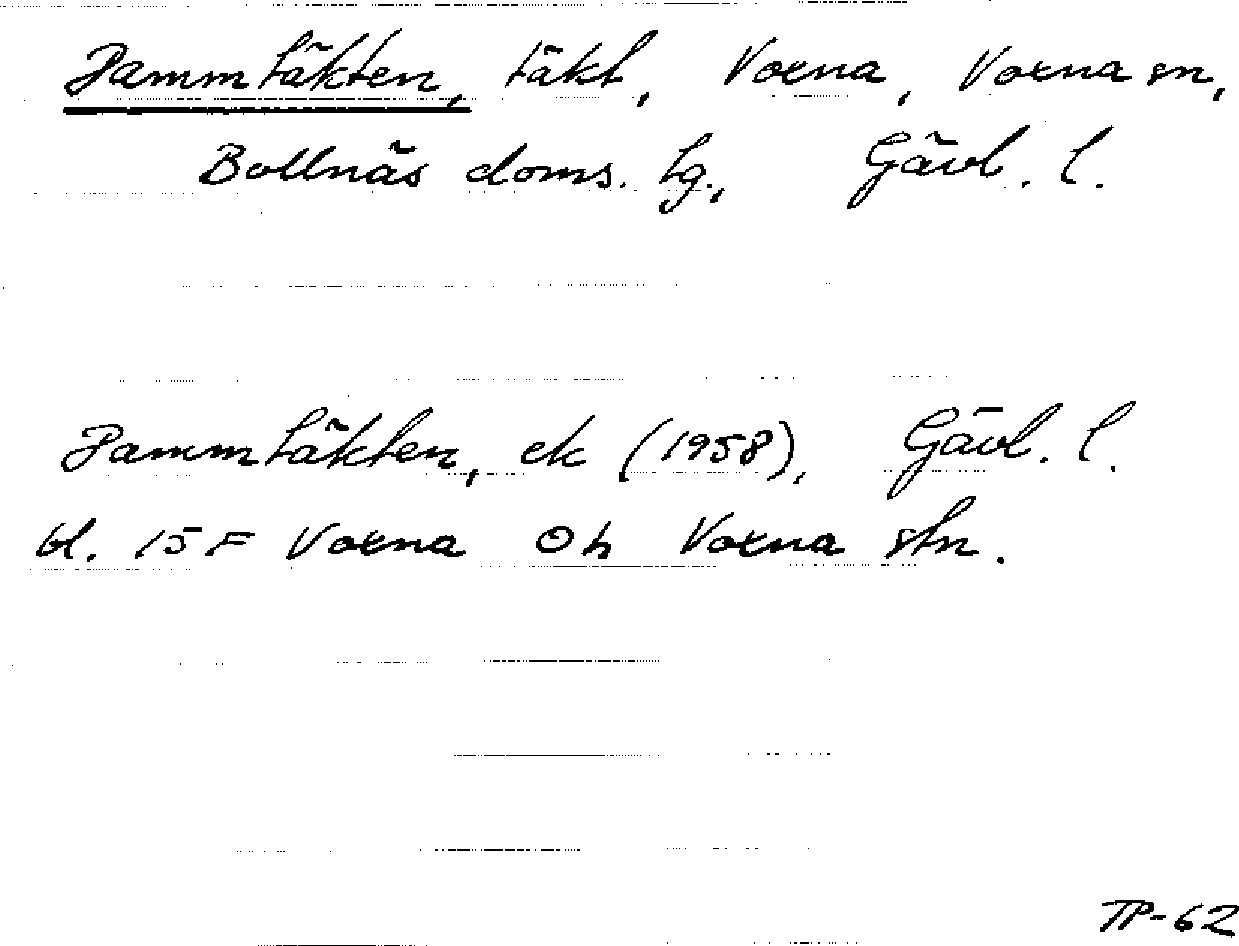 Dammtäkten, täkt, Voxna, Voxna sn,
Bollnäs doms. lg., Gävl. l.
Dammtäkten, ek (1958), Gävl. l.
bl. 15 F Voxna 0 h Voxna stn.
TP-62